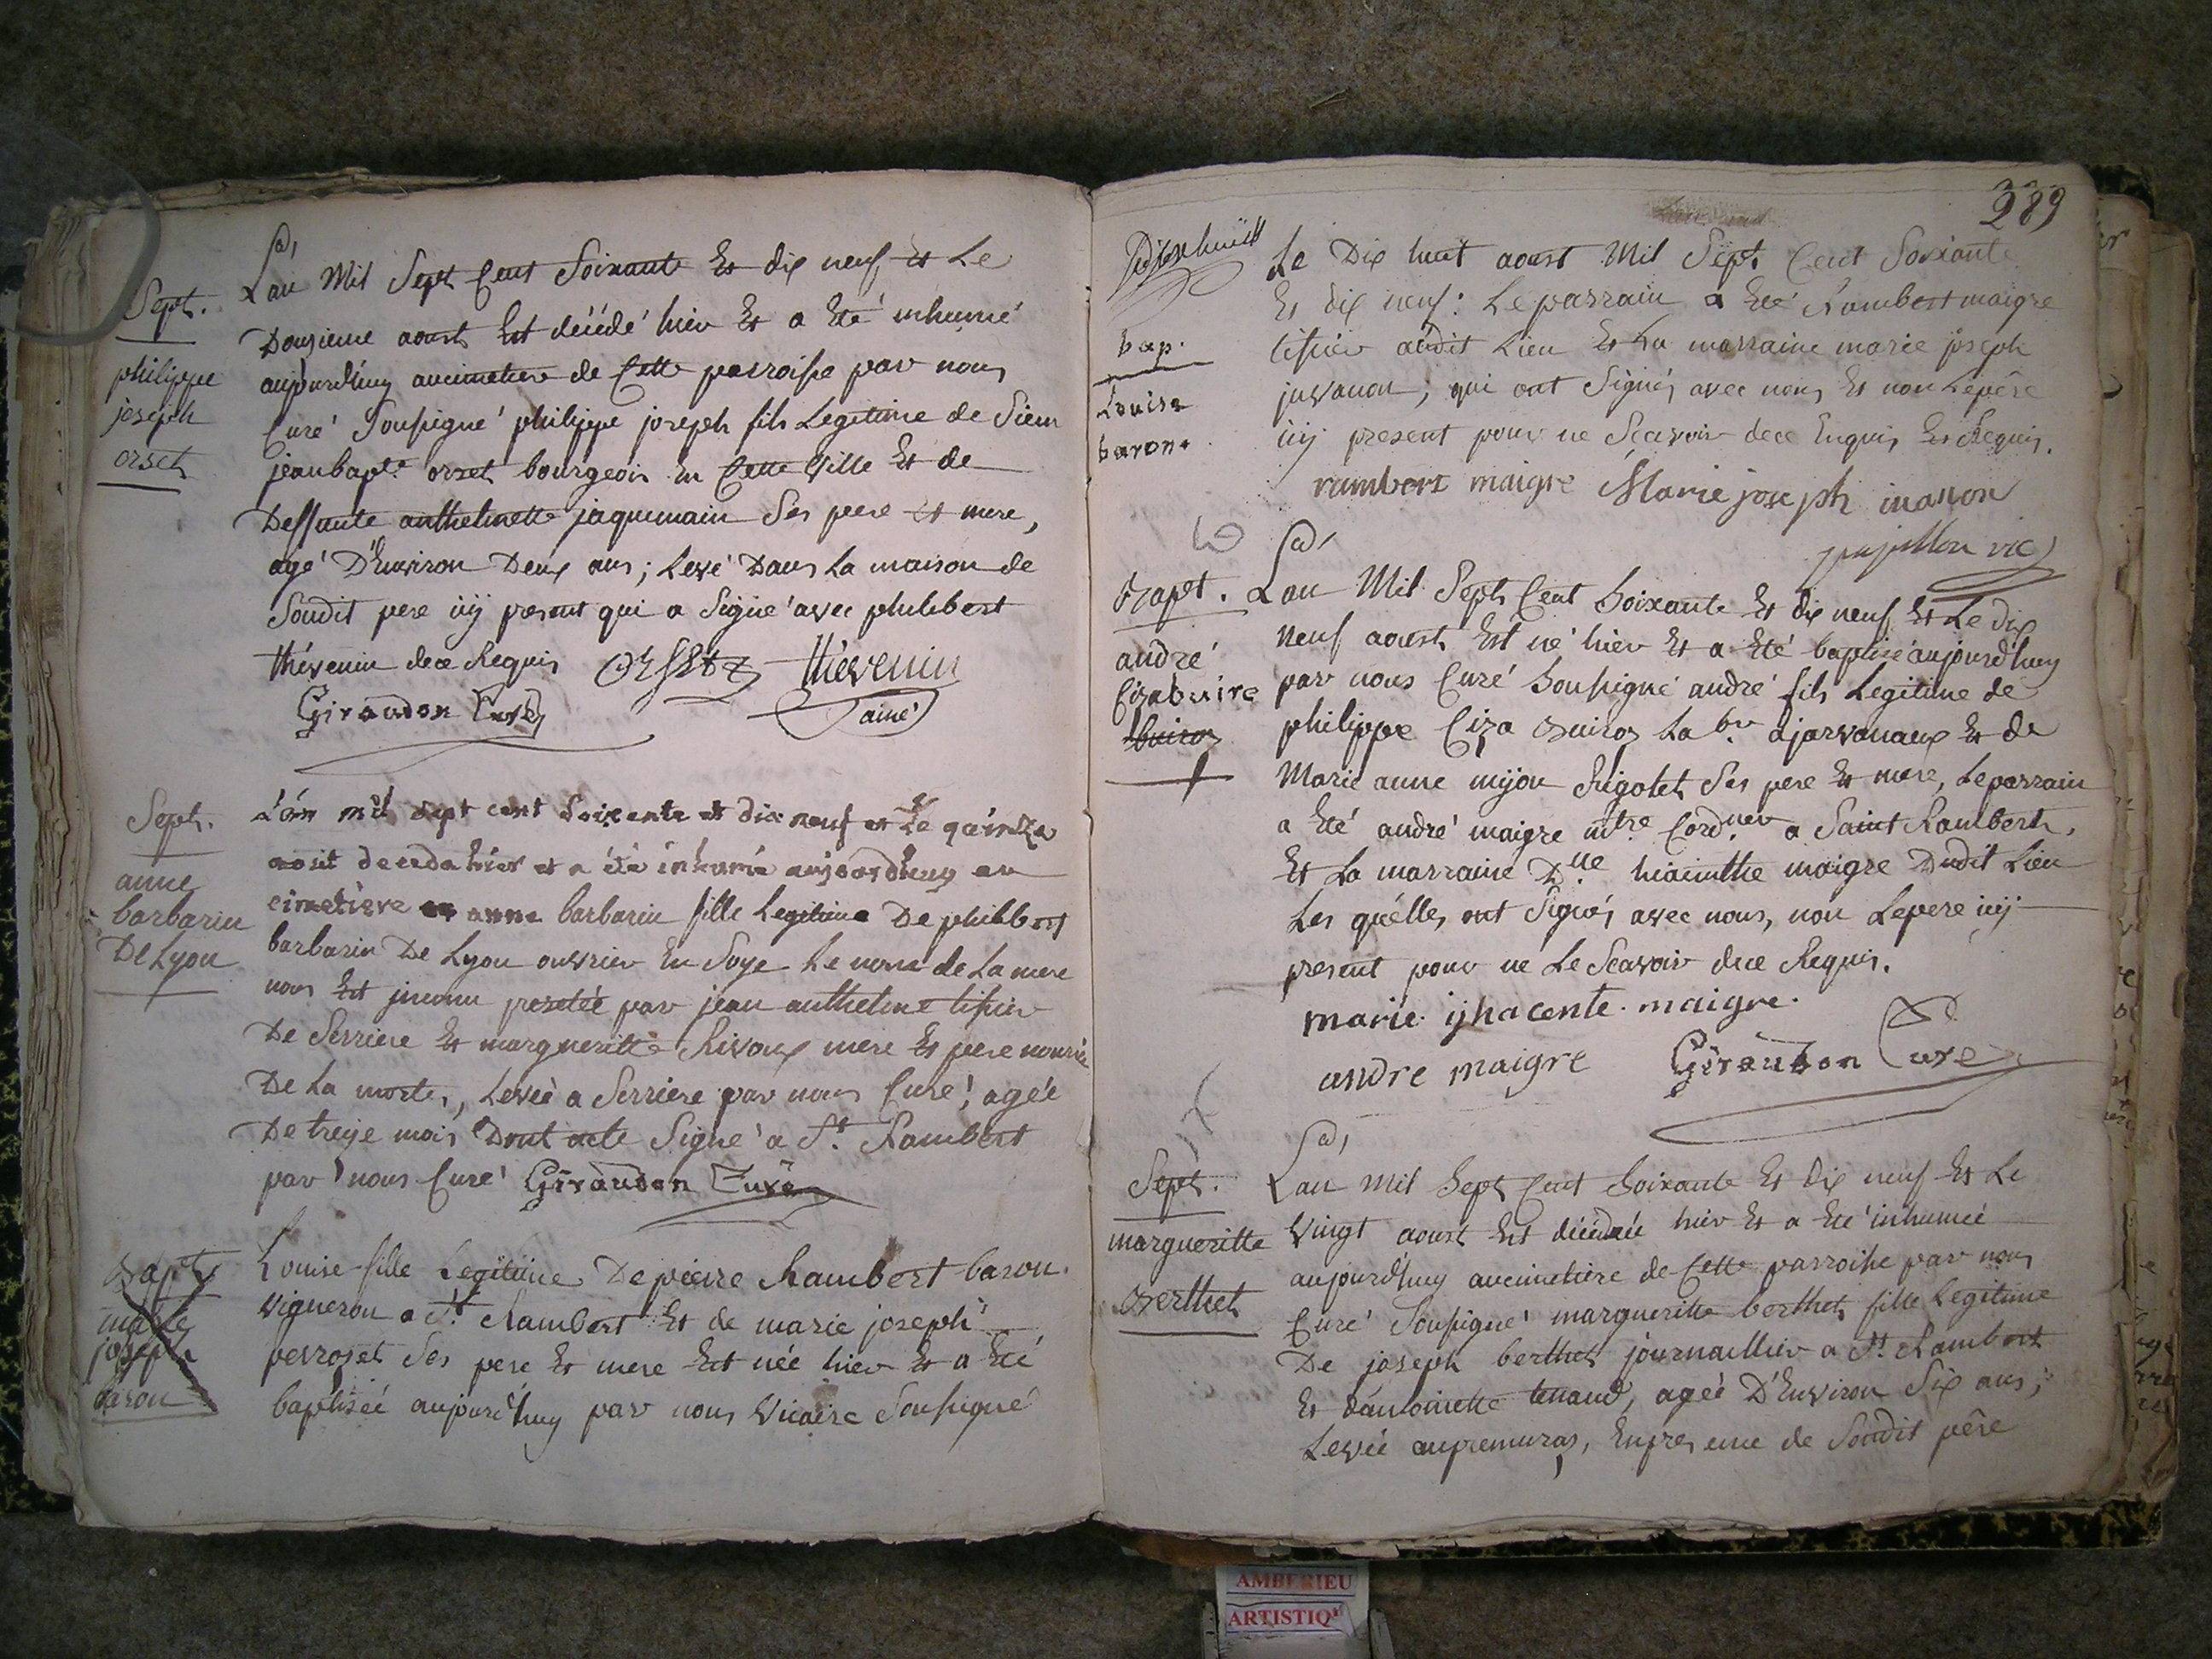 Sept.
philippe
joseph
orset
L'an Mil Sept Cent Soixante Et dix neuf Et Le
Douzieme aoust Est décédé hier Et a Eté inhumé
aujourd'huy aucimetiere de Cette parroisse par nous
Curé Soussigné philippe joseph fils Legitime de Sieur
jean bapte. orset bourgeois En Cette Ville Et de
Deffunte anthelmette jaquemain Ses pere et mere,
agé D'Environ Deux ans; Levé Dans La maison de
Soudit pere icy present qui a Signé avec philibert
thévenin de ce Requis Orset thévenin
Giraudon Curé ainé
Sept.
anne
barbarin
De Lyon
L'an mil sept cent soixente et dix neuf et le quinze
aout deceda hier et a été inhumée aujourdhuy au
cimetiere anne barbarin fille Legitime De philibert
barbarin De Lyon ouvrier En Soye Le nom de La mere
nous Est jnconnu presetée par jean anthelme tissier
De Serriere Et margueritte Rivoux mere Et pere nouriciè
De La morte, Levée a Serriere par nous Curé, agée
De treize mois Dont acte Signé a St. Rambert
par nous Curé Giraudon Curé
Bapt.
marie
joseph
baron
Louise fille Legitime De pierre Rambert baron
Vigneron a St. Rambert Et de marie joseph
perroset Ses pere Et mere Est née hier Et a Eté
baptisée aujourd'huy par nous Vicaire Soussigné
289
bap.
Louise
baron
Le Dix huit aoust Mil Sept Cent Soixante
Et dix neuf: Le parrain a Eté Rambert maigre
tissier audit Lieu Et La marraine marie joseph
juvanon, qui ont Signés avec nous Et non Lepère
icy present pour ne Scavoir de ce Enquis Et Requis.
rambert maigre Marie joseph
papillon vic
Bapt.
andré
Cizabuire
L'an Mil Sept Cent Soixante Et dix neuf Et Le dix
neuf aoust Est né hier Et a Eté baptisé aujourd'huy
par nous Curé Soussigné andré fils Legitime de
philippe Ciza buiroz Labr. a jarvonaux Et de
Marie anne mijon Rigolet Ses pere Et mere, Le parrain
a Eté andré maigre mtre. Cordner. a Saint Rambert,
Et La marraine Dlle. hiacinthe maigre Dudit Lieu
Les quelles ont Signés avec nous, non Lepere icy
present pour ne Le Scavoir de ce Requis.
marie ijhacente maigre
andre maigre Giraudon Curé
Sept.
margueritte
Berthet
L'an Mil Sept Cent Soixante Et dix neuf Et Le
Vingt aoust Est décédée hier Et a Eté inhumée
aujourd'huy aucimetiere de Cette parroisse par nous
Curé Soussigné margueritte berthet fille Legitime
De joseph berthet journaillier a St. Rambert
Et d'antoinette tenand, agée D'Environ Six ans;
Levée, Enpresence de Soudit père
AMBERIEU
ARTISTIQ